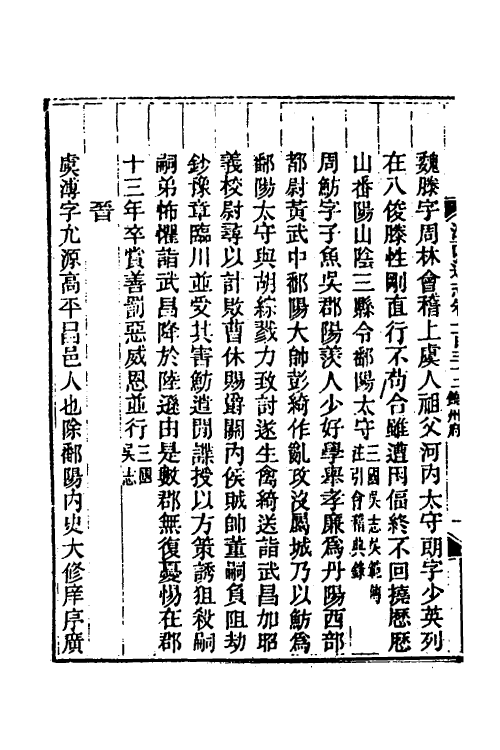 魏滕字周林會稽上虞人祖父河內太守朗字少英列
在八俊滕性剛直行不苟合雖遭困偪終不回撓歷歷
山番陽山陰三縣令鄱陽太守三國吳志吳範傳注引會稽典錄
周魴字子魚吳郡陽羨人少好學舉孝廉爲丹陽西部
都尉黃武中鄱陽大帥彭綺作亂攻沒屬城乃以魴爲
鄱陽太守與胡綜戮力致討遂生禽綺送詣武昌加昭
義校尉尋以計敗曹休賜爵關內侯賊帥董嗣負阻劫
鈔豫章臨川並受其害魴遣閒諜授以方策誘狙殺嗣
嗣弟怖懼詣武昌降於陸遜由是數郡無復憂惕在郡
十三年卒賞善罰惡威恩並行三國吳志
晉
虞溥字允源高平昌邑人也除鄱陽內史大修庠序廣